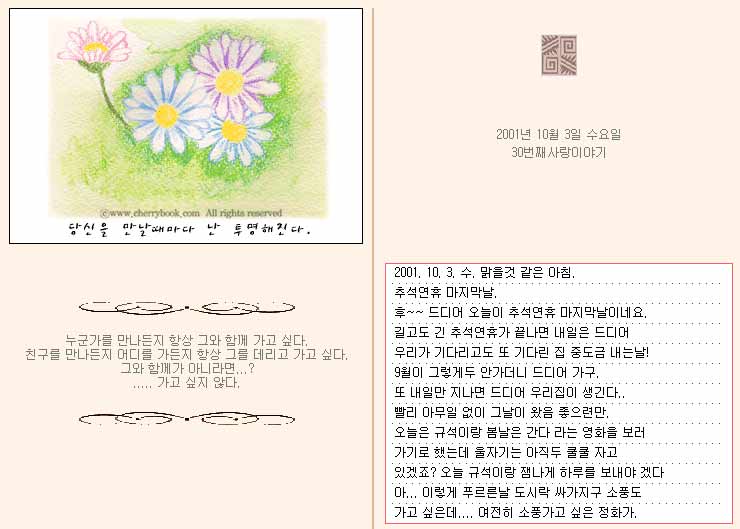 ⓒwww.cherrybook.com All rights reserved
당신을 만날때마다 난 투명해진다.
누군가를 만나든지 항상 그와 함께 가고 싶다.
친구를 만나든지 어디를 가든지 항상 그를 데리고 가고 싶다.
그와 함께가 아니라면...?
..... 가고 싶지 않다.
2001년 10월 3일 수요일
30번째사랑이야기
2001. 10. 3. 수. 맑을것 같은 아침.
추석연휴 마지막날.
후~~ 드디어 오늘이 추석연휴 마지막날이네요.
길고도 긴 추석연휴가 끝나면 내일은 드디어
우리가 기다리고도 또 기다린 집 중도금 내는날!
9월이 그렇게두 안가더니 드디어 가구.
또 내일만 지나면 드디어 우리집이 생긴다..
빨리 아무일 없이 그날이 왔음 좋으련만.
오늘은 규석이랑 봄날은 간다 라는 영화을 보러
가기로 했는데 울자기는 아직두 쿨쿨 자고
있겠죠? 오늘 규석이랑 잼나게 하루를 보내야 겠다
아... 이렇게 푸르른날 도시락 싸가지구 소풍도
가고 싶은데.... 여전히 소풍가고 싶은 정화가.